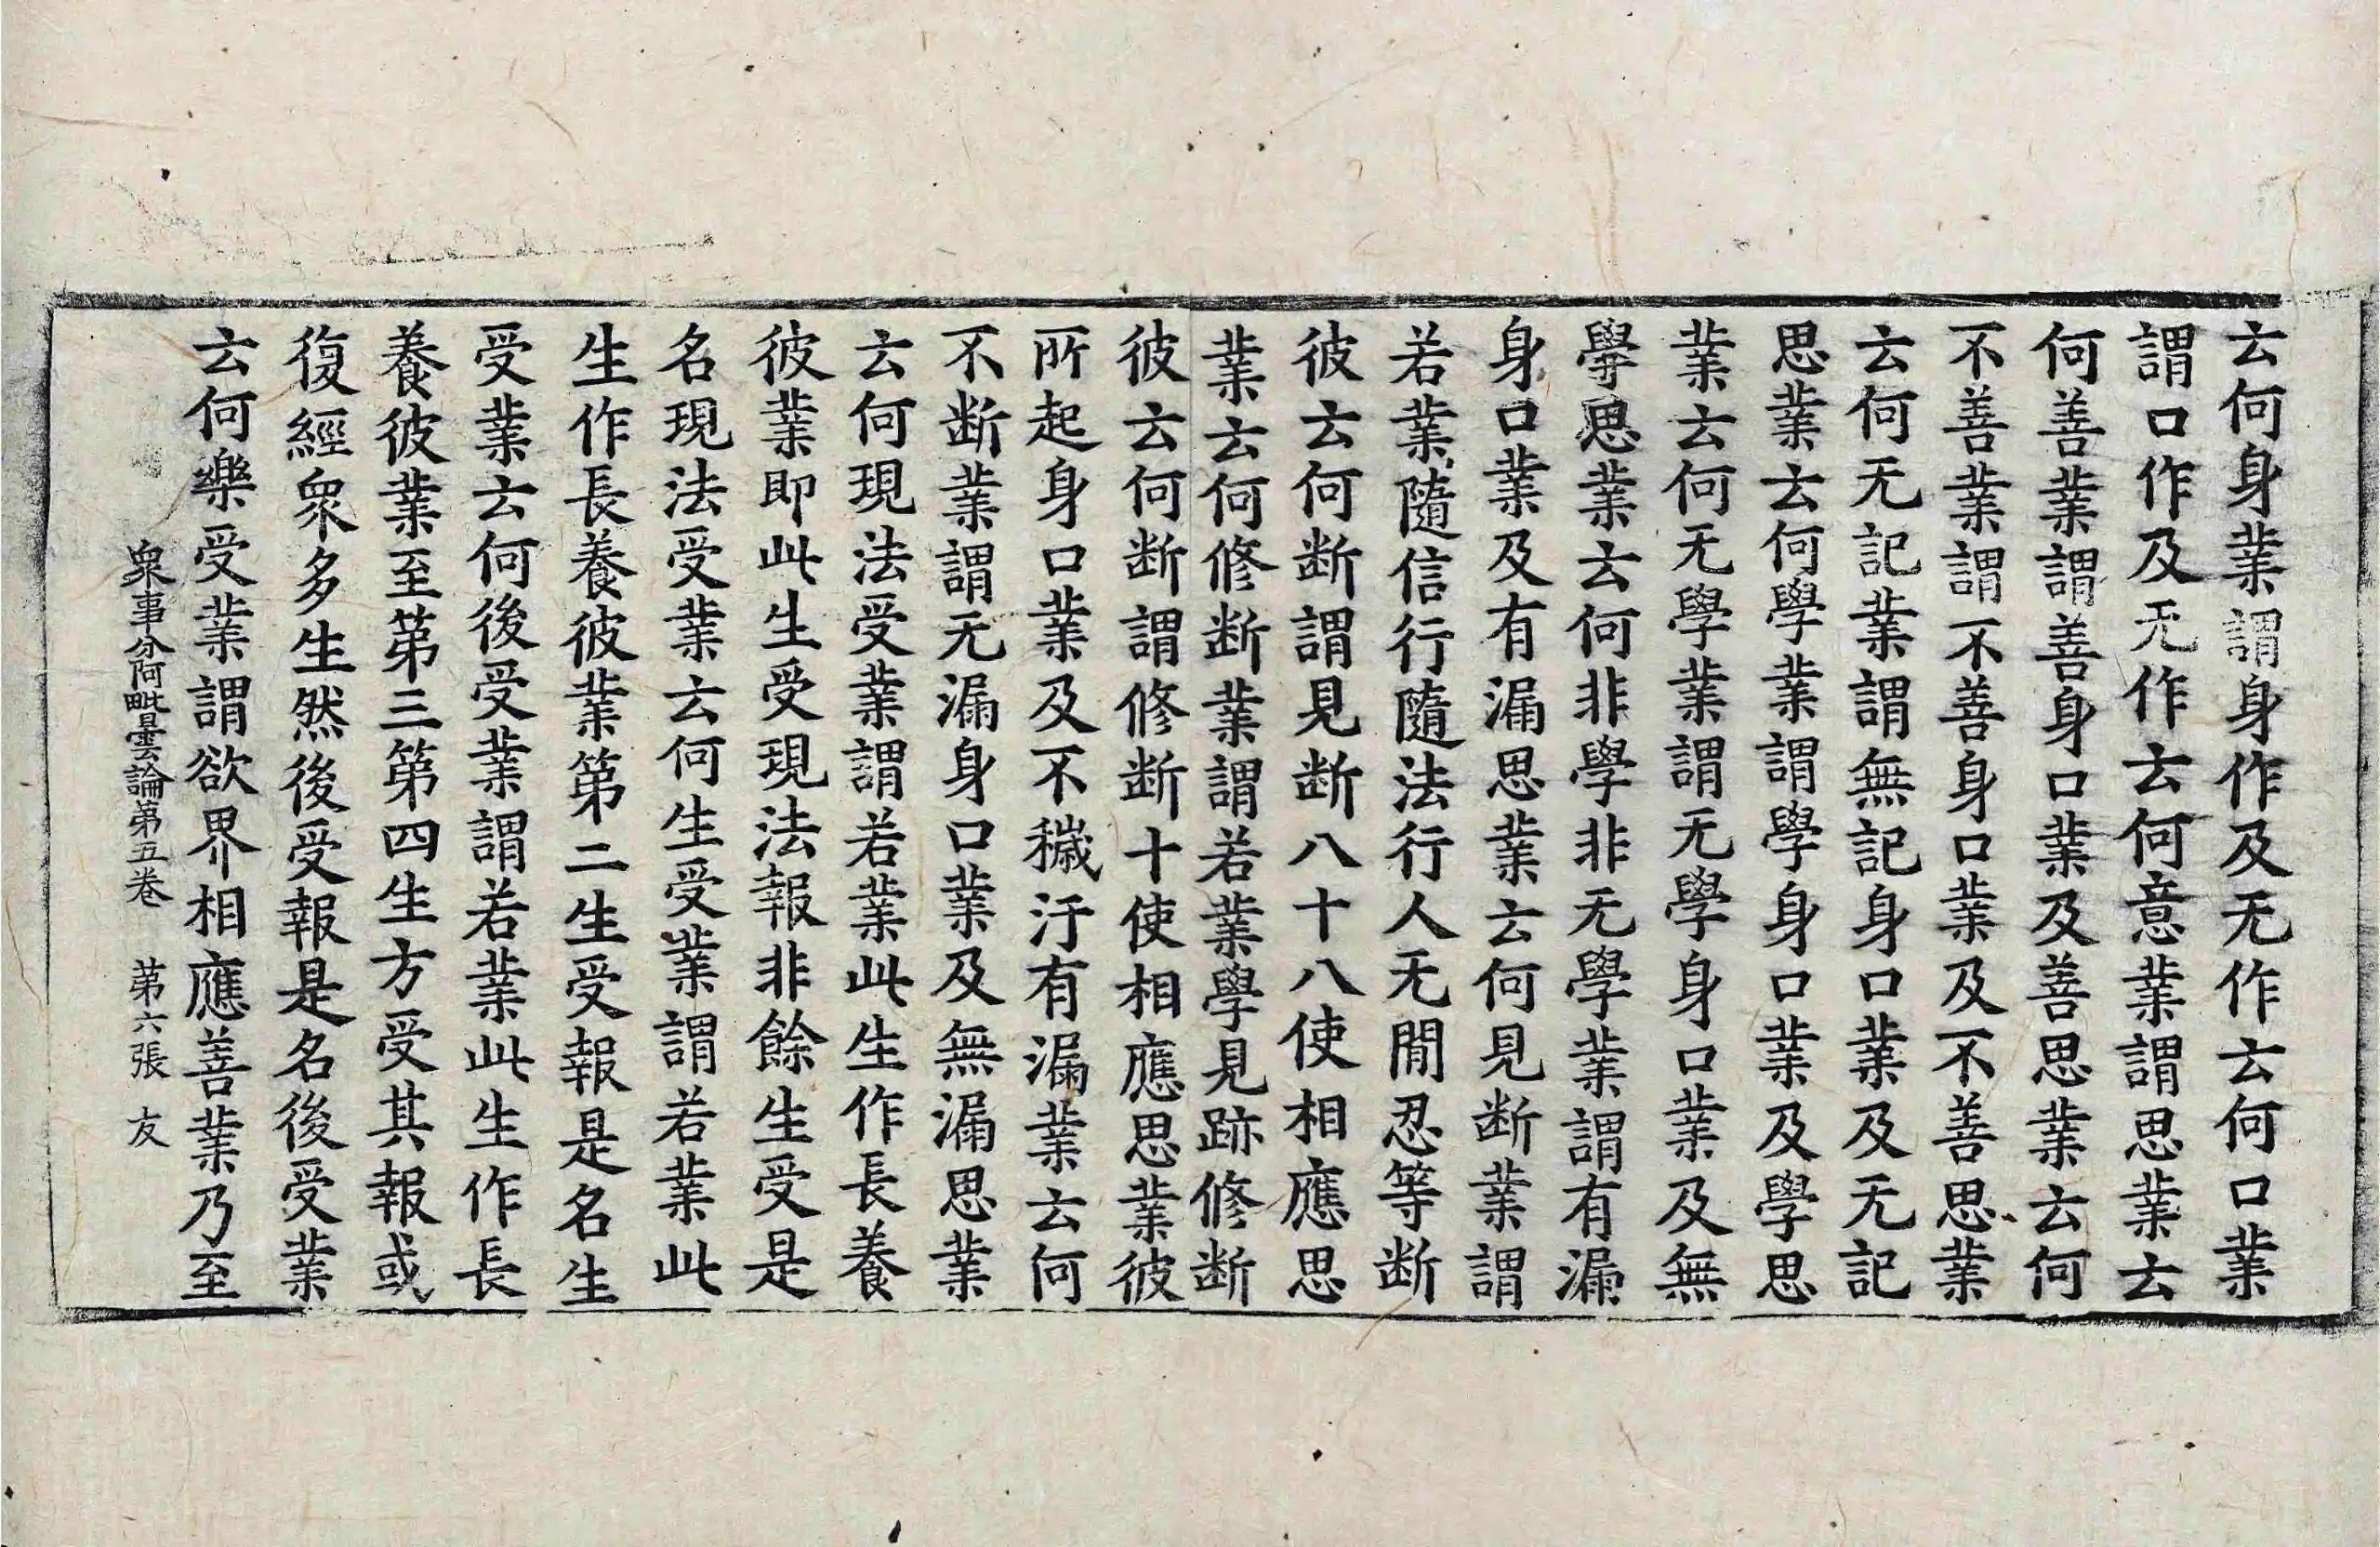 云何身業謂身作及无作云何口業
謂口作及无作云何意業謂思業云
何善業謂善身口業及善思業云何
不善業謂不善身口業及不善思業
云何无記業謂無記身口業及无記
思業云何學業謂學身口業及學思
業云何无學業謂无學身口業及無
學思業云何非學非无學業謂有漏
身口業及有漏思業云何見断業謂
若業隨信行隨法行人无閒忍等断
彼云何断謂見断八十八使相應思
業云何修断業謂若業學見跡修断
彼云何断謂修断十使相應思業彼
所起身口業及不穢汙有漏業云何
不断業謂无漏身口業及無漏思業
云何現法受業謂若業此生作長養
彼業即此生受現法報非餘生受是
名現法受業云何生受業謂若業此
生作長養彼業第二生受報是名生
受業云何後受業謂若業此生作長
養彼業至第三第四生方受其報或
復經衆多生然後受報是名後受業
云何樂受業謂欲界相應善業乃至
衆事分阿毗曇論第五卷 第六張 友